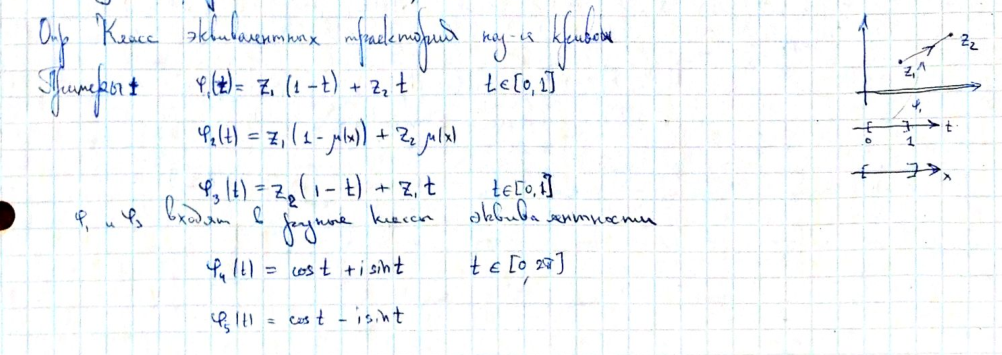 Опр Класс эквивалентных траекторий наз-ся кривой
Примеры: φ₁(t) = z₁ (1-t) + z₂ t t∈[0,1]
φ₂(t) = z₁ (1 - μ(x)) + z₂ μ(x)
φ₃(t) = z₂ (1-t) + z₁ t t∈[0,1]
φ₁ и φ₃ входят в разные классы эквивалентности
φ₄(t) = cos t + i sin t t ∈ [0, 2π]
φ₅(t) = cos t - i sin t
z₂
z₁
φ₁
t
0 1
x